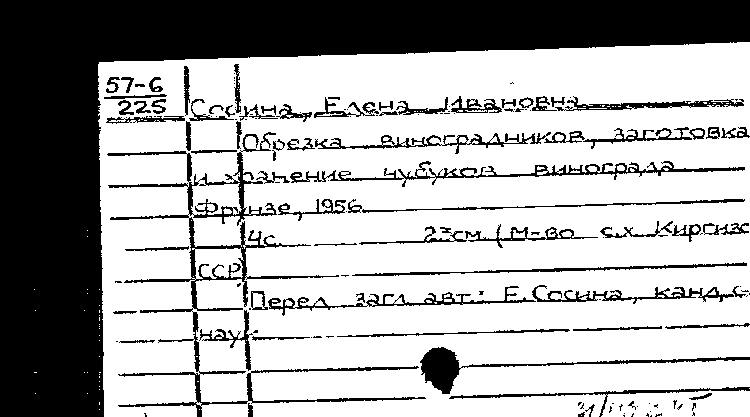 57-6
225
Сосина, Елена Ивановна
Обрезка виноградников, заготовка
и хранение чубуков винограда
Фрунзе, 1956
4с. 23см. (М-во с.х. Киргизс
ССР)
Перед загл. авт.: Е. Сосина, канд. с-
наук